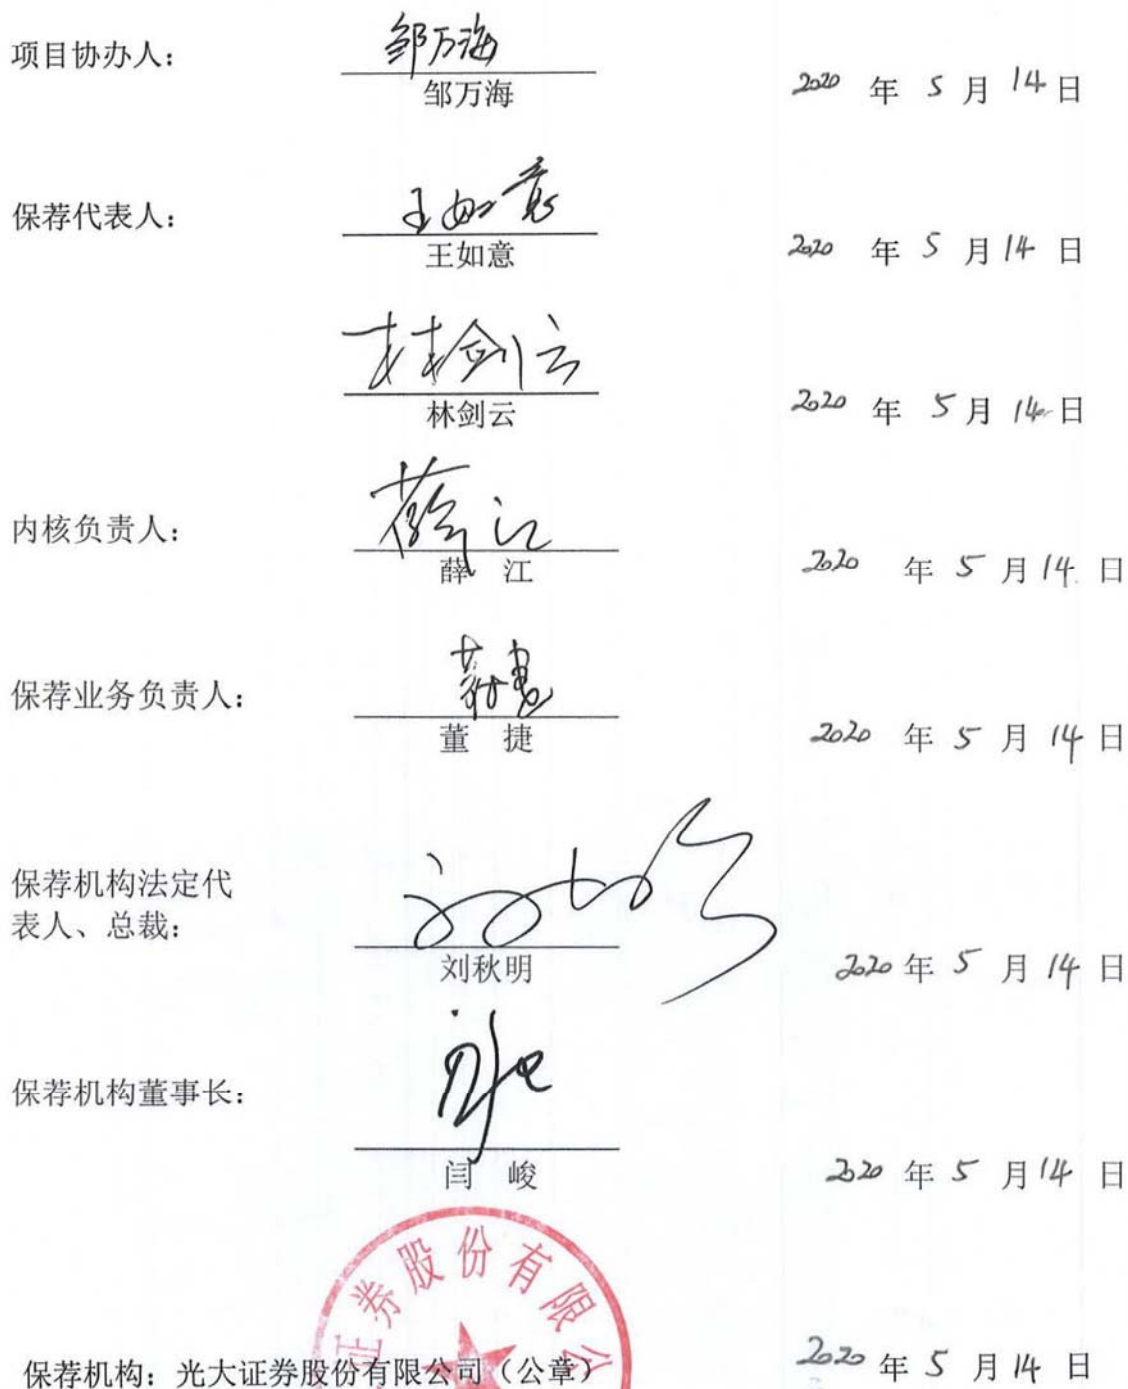 项目协办人：
邹万海
邹万海
2020 年 5 月 14 日
保荐代表人：
王如意
王如意
2020 年 5 月 14 日
林剑云
林剑云
2020 年 5 月 14 日
内核负责人：
薛江
薛 江
2020 年 5 月 14 日
保荐业务负责人：
董捷
董 捷
2020 年 5 月 14 日
保荐机构法定代
表人、总裁：
刘秋明
2020 年 5 月 14 日
保荐机构董事长：
闫 峻
2020 年 5 月 14 日
证券股份有限公
保荐机构：光大证券股份有限公司（公章）
2020 年 5 月 14 日